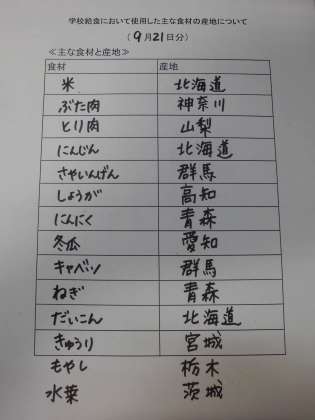 学校給食において使用した主な食材の産地について
(9月21日分)
≪主な食材と産地≫
食材 産地
米 北海道
ぶた肉 神奈川
とり肉 山梨
にんじん 北海道
さやいんげん 群馬
しょうが 高知
にんにく 青森
冬瓜 愛知
キャベツ 群馬
ねぎ 青森
だいこん 北海道
きゅうり 宮城
もやし 栃木
水菜 茨城